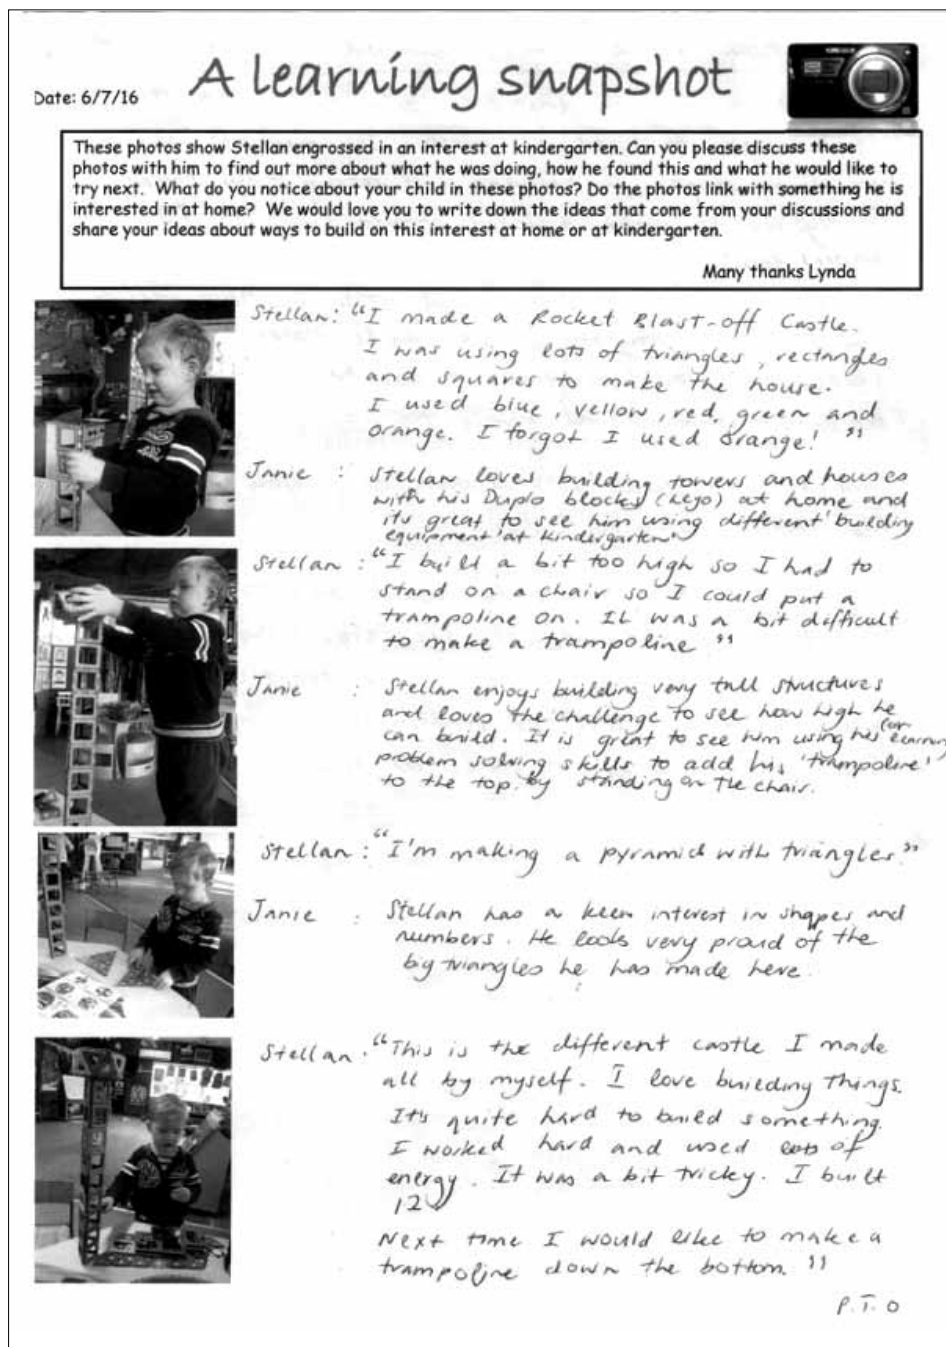 A learning snapshot
Date: 6/7/16
These photos show Stellan engrossed in an interest at kindergarten. Can you please discuss these
photos with him to find out more about what he was doing, how he found this and what he would like to
try next.  What do you notice about your child in these photos? Do the photos link with something he is
interested in at home?  We would love you to write down the ideas that come from your discussions and
share your ideas about ways to build on this interest at home or at kindergarten.
Many thanks Lynda
Stellan: "I made a Rocket Blast-off Castle.
I was using lots of triangles, rectangles
and squares to make the house.
I used blue, yellow, red, green and
orange. I forgot I used orange!"
Janie : Stellan loves building towers and houses
with his Duplo blocks (Lego) at home and
its great to see him using different 'building
equipment' at kindergarten.
Stellan : "I build a bit too high so I had to
stand on a chair so I could put a
trampoline on. It was a bit difficult
to make a trampoline"
Janie : Stellan enjoys building very tall structures
and loves the challenge to see how high he
can build. It is great to see him using his (or learning)
problem solving skills to add his 'trampoline'
to the top by standing on the chair.
Stellan : "I'm making a pyramid with triangles."
Janie : Stellan has a keen interest in shapes and
numbers. He looks very proud of the
big triangles he has made here.
Stellan : "This is the different castle I made
all by myself. I love building things.
It's quite hard to build something.
I worked hard and used lots of
energy. It was a bit tricky. I built
12.
Next time I would like to make a
trampoline down the bottom."
P.T.O